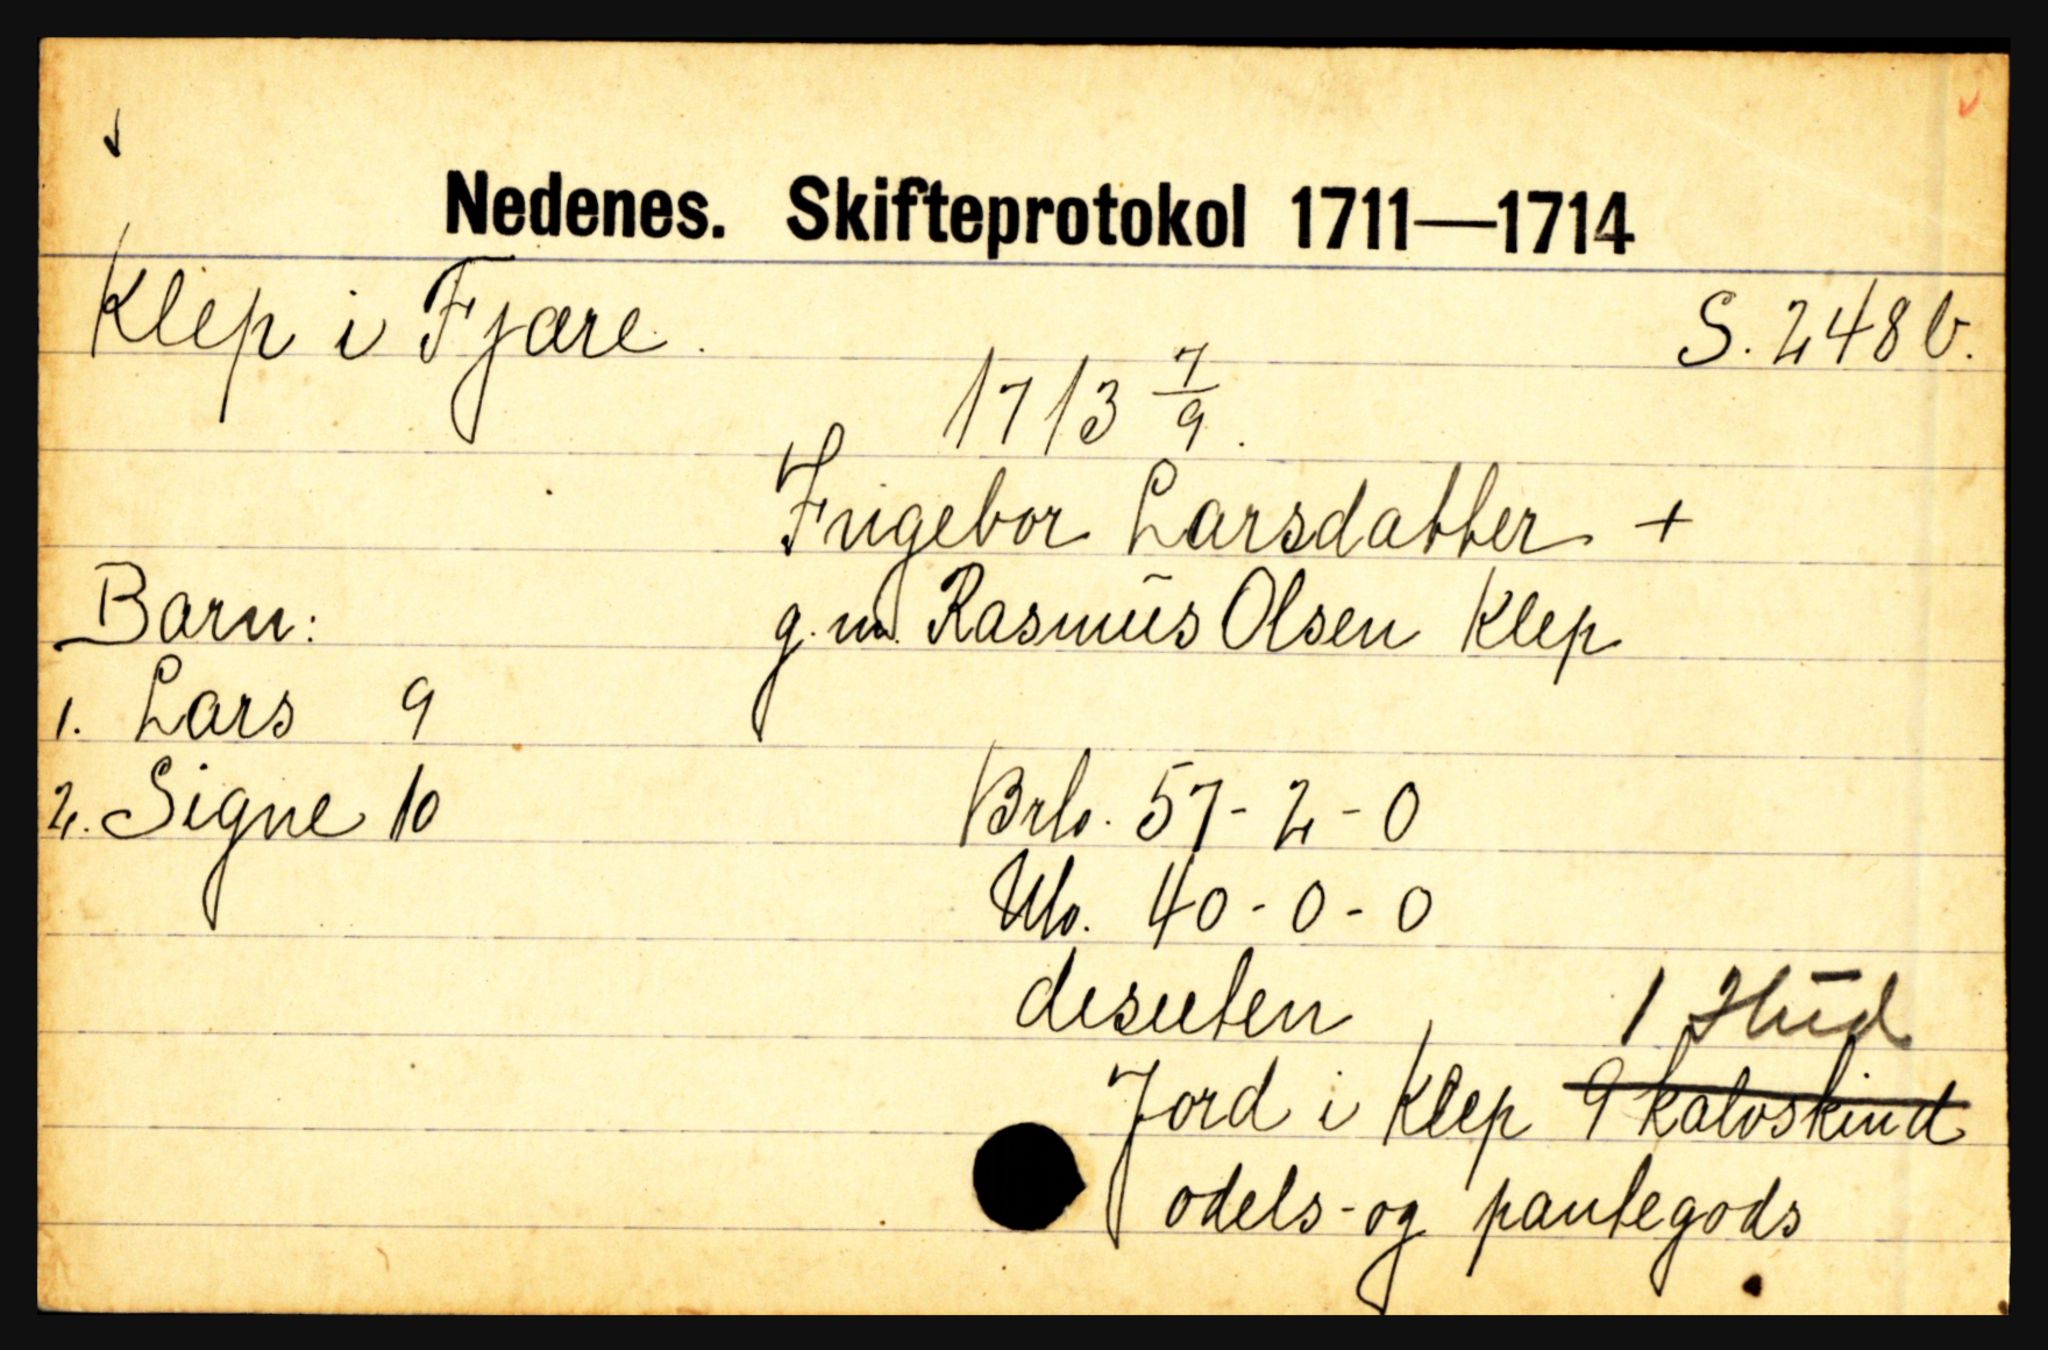 Nedenes. Skifteprotokol 1711—1714
Klep i Fjære.
S. 248 b.
1713 7/9.
Ingebor Larsdatter +
Barn:
g. m. Rasmus Olsen Klep
1. Lars 9
2. Signe 10
Brb. 57-2-0
Nb. 40-0-0
desuten 1 Hud
Jord i Klep 9 kalvskind
odels- og pantegods